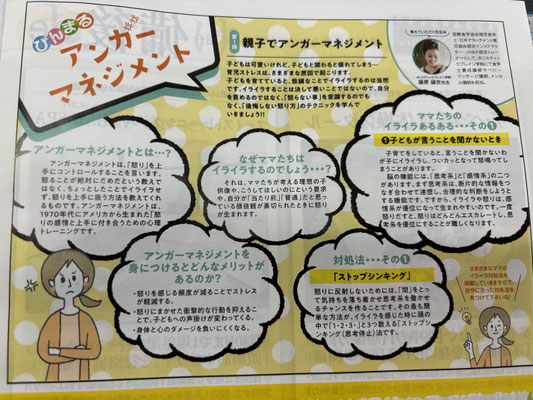 ひんまる
アンガー
マネジメント
第1回 親子でアンガーマネジメント
子どもは可愛いけれど、子どもと関わると疲れてしまう…
育児ストレスは、さまざまな原因で起こります。
子どもを育てていると、些細なことでイライラするのは当然
です。イライラすることは決して悪いことではないので、自分
を責めるのではなく、「怒らない事」を意識するのでも
なく、「後悔しない怒り方」のテクニックを学んで
いきましょう!!
教えていただく先生は
アンガーマネジメントとは…?
アンガーマネジメントは、「怒り」を上
手にコントロールすることを言います。
怒ることが絶対にだめだという教えで
はなく、ちょっとしたことでイライラせ
ず、怒りを上手に扱う方法を教えてくれ
るものです。アンガーマネジメントは、
1970年代にアメリカから生まれた「怒り
の感情と上手に付き合うため」の心理
トレーニングです。
なぜママたちは
イライラするのでしょう…?
それは、ママたちが考える理想の子
供像や、こうしてほしいのにという要求
や、自分が「当たり前」「普通」だと思っ
ている価値観が裏切られたときに怒り
が生まれます。
ママたちの
イライラあるある…その①
①子どもが言うことを聞かないとき
子育てをしていると、言うことを聞かないわ
が子にイライラし、ついカッとなって怒鳴ってし
まうことがあります。
脳の機能には、「思考系」と「感情系」の二つ
があります。まず思考系は、断片的な情報をつ
なぎ合わせて連想し、合理的な判断をしようと
する機能です。ですから、イライラや怒りは、感
情系が優位になって生まれやすいのです。一度
怒りだすと、怒りはどんどんエスカレートし、思
考系を優位にすることが難しくなります。
アンガーマネジメントを
身につけるとどんなメリットが
あるのか?
・怒りを感じる頻度が減ることでストレス
が軽減する。
・怒りにまかせた衝撃的な行動を抑えるこ
とで、子どもへの声掛けが変わってくる。
・身体と心のダメージを負いにくくなる。
対処法…その①
「ストップシンキング」
怒りに反射しないためには、「間」をとっ
て気持ちを落ち着かせ思考系を働かせ
るチャンスを作ることです。その最も簡
単な方法が、イライラを感じた時に頭の
中で「1・2・3・」と3つ数える「ストップシ
ンキング(思考停止)法です。
さまざまなママの
イライラ対処法を
掲載していきますので、
自分に合った対処法を
見つけて下さいね!